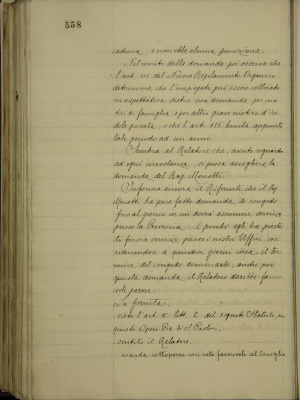 558
caduna, e non ebbe alcuna punizione.
Nel merito della domanda poi osserva che
l'art. del Nuovo Regolamento Organico
determina che l'impiegato può essere collocato
in aspettativa dietro sua domanda per mo
tivi di famiglia e per altra grave motivo d'in
dole privata, e che l'art. 116 limita appunto
tale periodo ad un anno.
Sembra al Relatore che, avuto riguardo
ad ogni circostanza, si possa accogliere la
domanda del Rag. Monetti.
Informa ancora il Referente che il Rag.
Monetti ha pure fatto domanda di congedo
fino al giorno in cui dovrà assumere servizio
presso la Provincia. E poichè egli ha presta
to finora servizio presso i nostri Uffici, con
siderandosi a quindici giorni circa il ter
mine del congedo domandato, anche per
questa domanda il Relatore sarebbe favore
vole parere.
La Giunta,
visto l'art. 5 lett. del vigente Statuto per
queste Opere Pie di S. Paolo,
sentito il Relatore,
manda sottoporre con voto favorevole al Consiglio